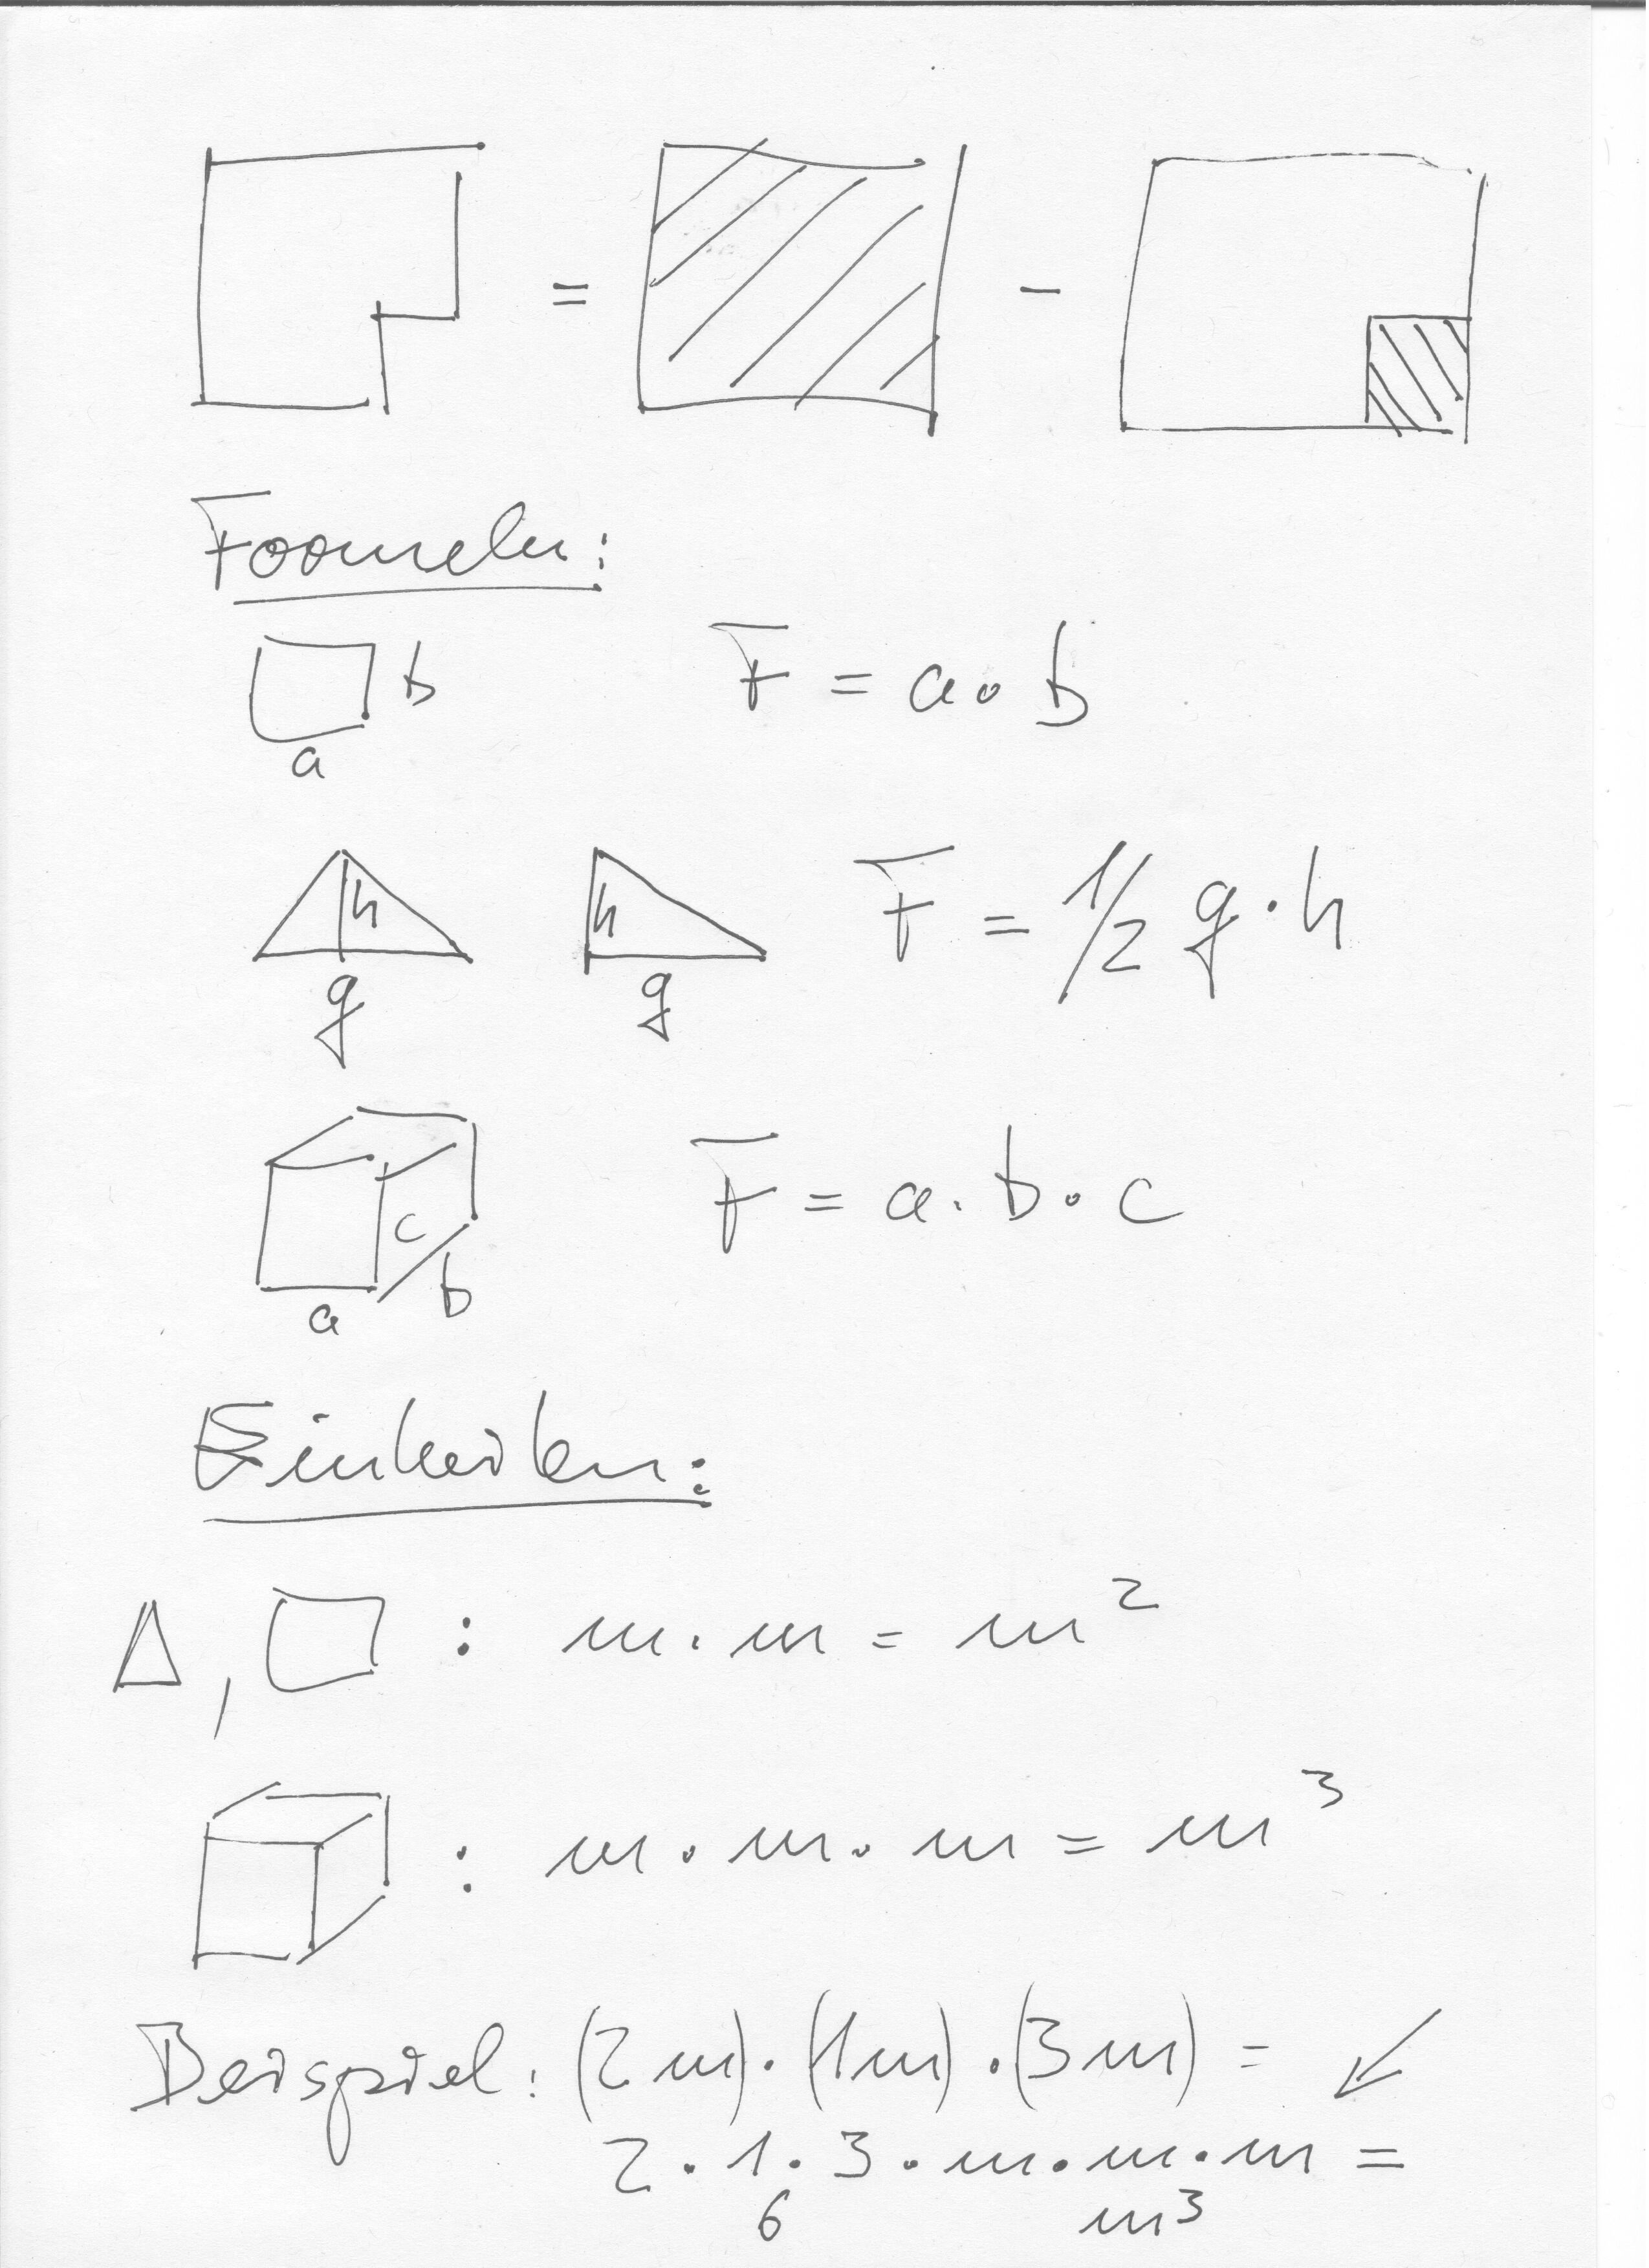 = -
Formeln:
b F = a · b
a
h h F = 1/2 g · h
g g
F = a · b · c
c
b
a
Einheiten:
Δ, □ : m · m = m²
: m · m · m = m³
Beispiel: (2m) · (1m) · (3m) = ↙
2 · 1 · 3 · m · m · m =
6 m³